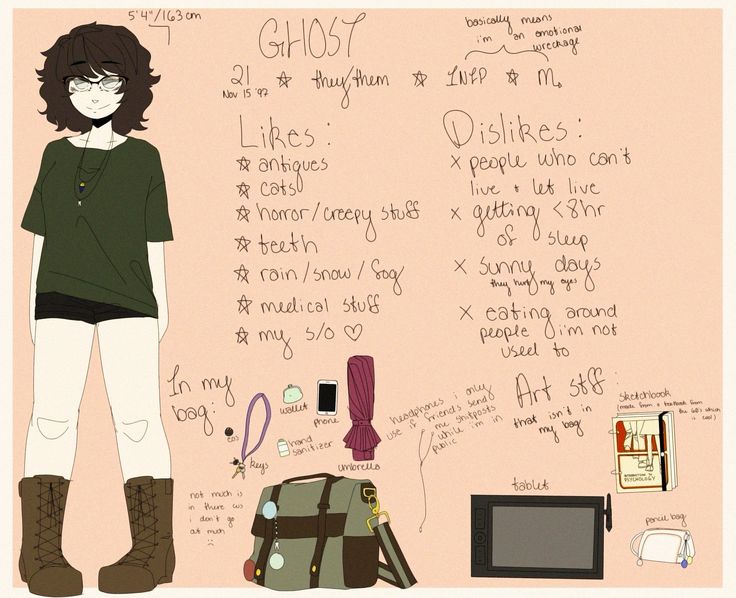 5'4"/163cm
GHOST
basically means
i'm an emotional
wreckage
21 ☆ they/them ☆ INFP ☆ M.
Nov 15 '97
Likes:
☆ antiques
☆ cats
☆ horror/creepy stuff
☆ teeth
☆ rain/snow/fog
☆ medical stuff
☆ my s/o ♡
Dislikes:
x people who can't
live + let live
x getting <8hr
of sleep
x sunny days
they hurt my eyes
x eating around
people i'm not
used to
In my
bag:
eos
keys
wallet
phone
hand
sanitizer
umbrella
headphones i only
use if friends send
me shitposts
while i'm in
public
not much is
in there cus
i don't go
out much
:)
Art stff:
that isn't in
my bag
sketchbook
(made from a textbook from
the 60's which
is cool)
INTRODUCTION TO
PSYCHOLOGY
tablet
pencil bag